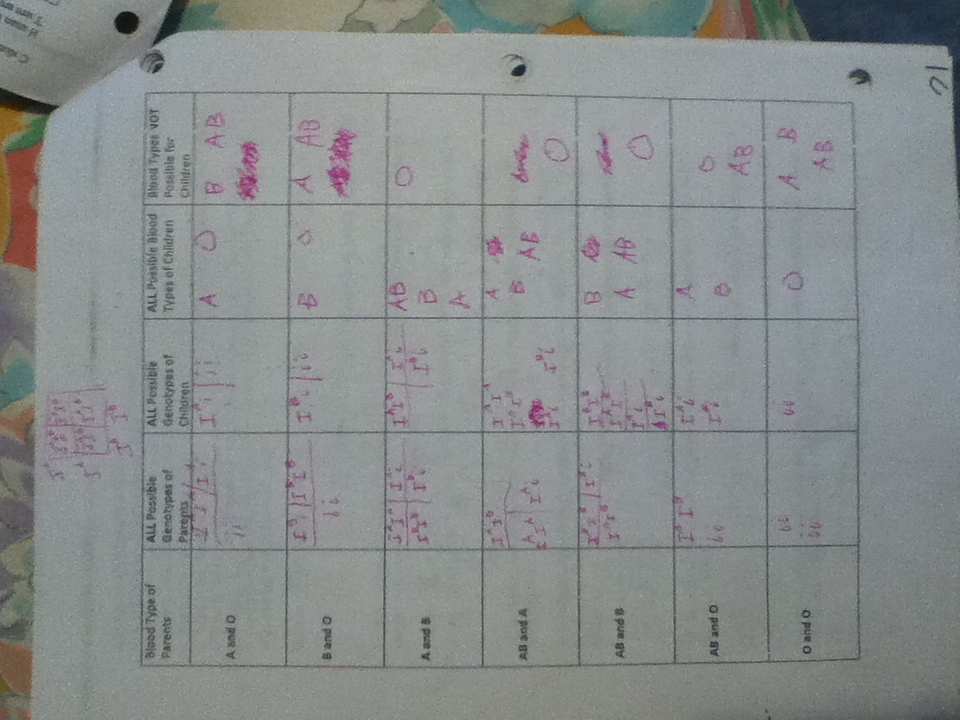 I^A I^A I^B I^A I^B
I^A I^A I^B I^A I^B
I^B I^B
Blood Type of Parents
ALL Possible Genotypes of Parents
ALL Possible Genotypes of Children
ALL Possible Blood Types of Children
Blood Types NOT Possible for Children
A and O
I^A I^A / I^A i
ii
I^A i | ii
A O
B AB
B and O
I^B i | I^B I^B
ii
I^B i | ii
B O
A AB
A and B
I^A I^A | I^A i
I^B I^B | I^B i
I^A I^B | I^A i
I^B i
AB
B
A
O
AB and A
I^A I^B
I^A I^A | I^A i
I^A I^A
I^A I^B
I^A i I^B i
A
B AB
O
AB and B
I^B I^B | I^B i
I^A I^B
I^B I^B
I^A I^B
I^A i
I^B i
B
A AB
O
AB and O
I^A I^B
ii
I^A i
I^B i
A
B
O
AB
O and O
ii
ii
ii
O
A B
AB
21